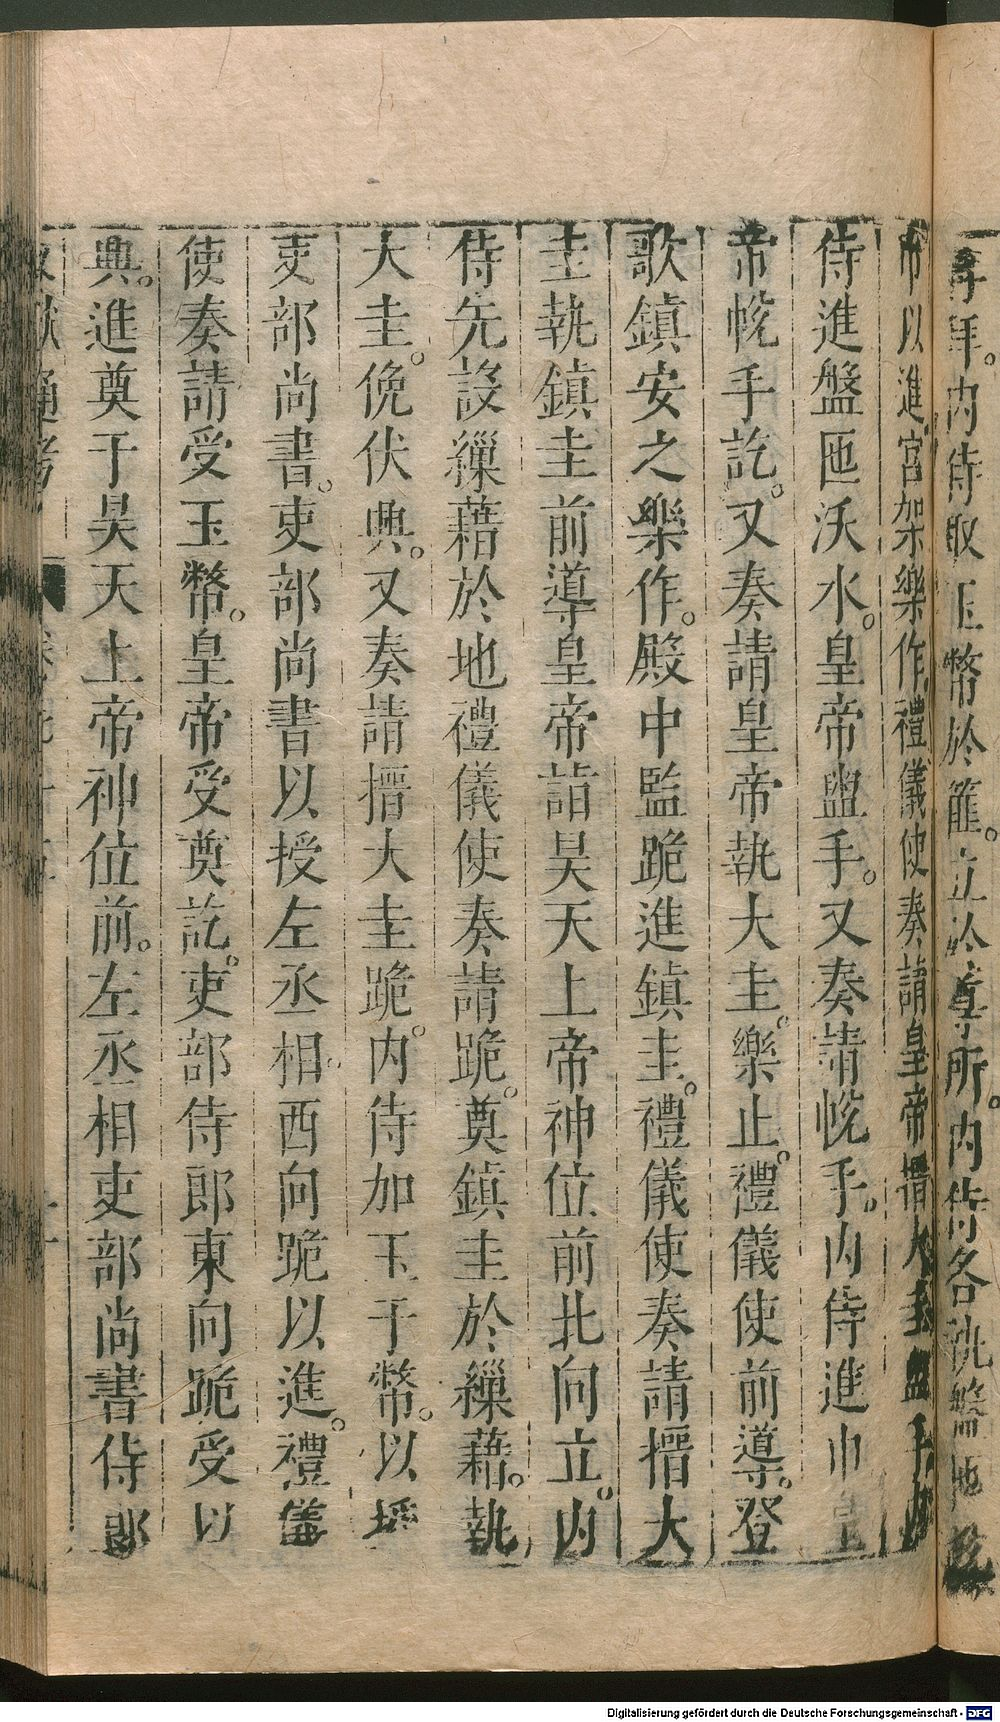 尊拜。内侍取玉幣於篚。立於尊所。内侍各執盤匜帨
巾以進宮架樂作禮儀使奏請皇帝搢大圭盥手内
侍進盤匜沃水。皇帝盥手。又奏請帨手。内侍進巾皇
帝帨手訖。又奏請皇帝執大圭。樂止。禮儀使前導。登
歌鎮安之樂作。殿中監跪進鎮圭。禮儀使奏請搢大
圭執鎮圭前導皇帝詣昊天上帝神位前北向立。内
侍先設繅藉於地禮儀使奏請跪。奠鎮圭於繅藉。執
大圭。俛伏興。又奏請搢大圭跪。内侍加玉于幣。以授
吏部尚書。吏部尚書以授左丞相。西向跪以進。禮儀
使奏請受玉幣。皇帝受奠訖。吏部侍郎東向跪受以
興。進奠于昊天上帝神位前。左丞相吏部尚書侍郎
文獻通考
Digitalisierung gefördert durch die Deutsche Forschungsgemeinschaft - DFG